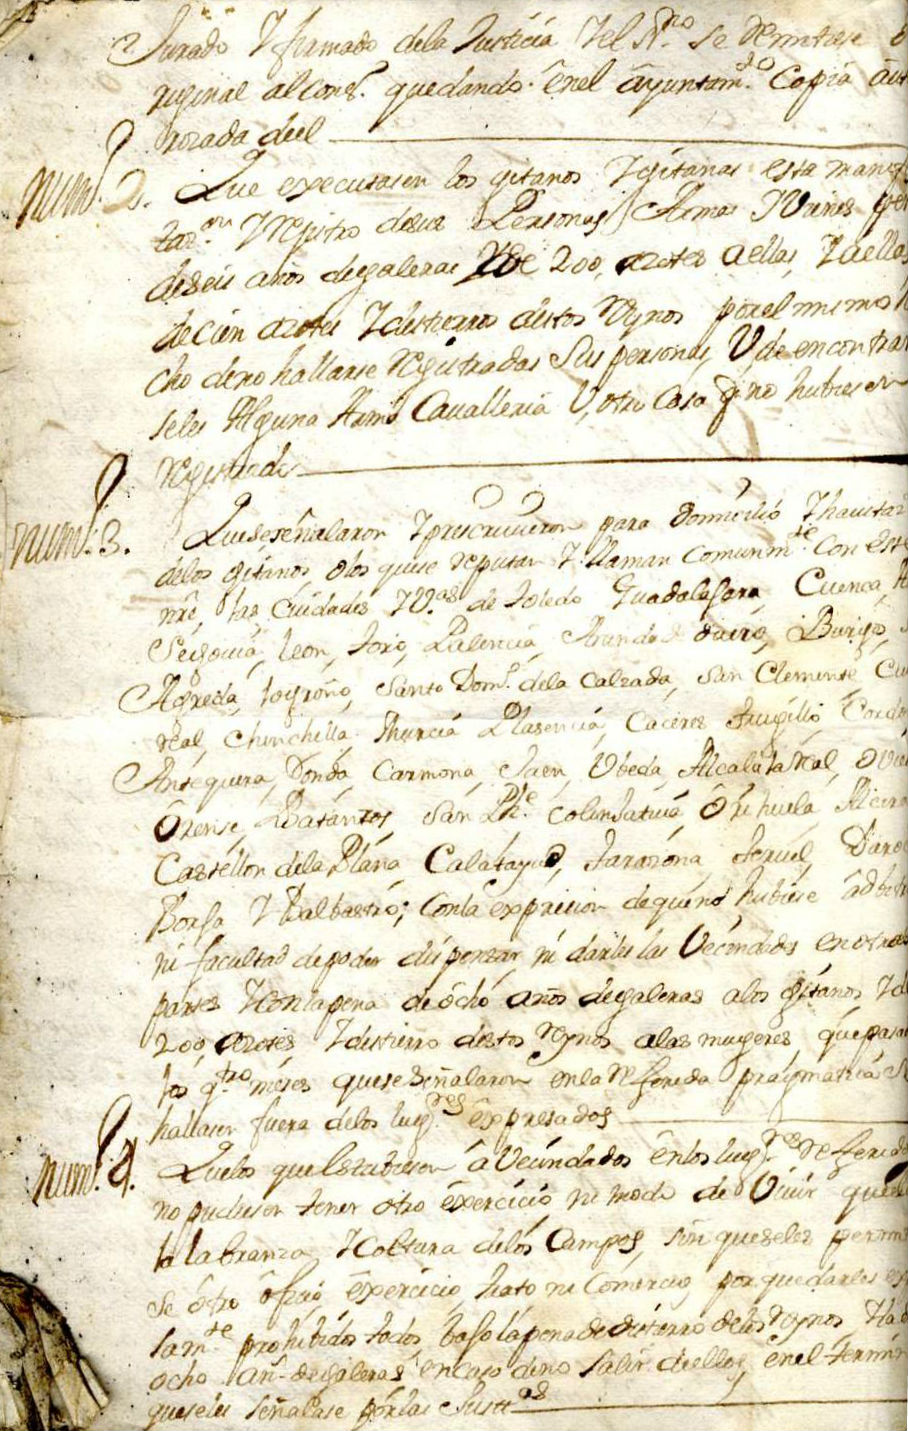 Jurado Y firmado dela Justicia Yel Srno se Remitese o
riginal al Cons.º quedando en el ayuntam.to Copia aut
rozada del
Num.º 2. Que executasen los gitanos Y gitanas esta manifes
taz.on Y Registro desus Personas, Armas Y Vienes pen
deseis años degaleras Y de 200, azotes aellos, Y aellas
decien azotes Y destierro destos Reynos por el mismo he
cho deno hallarse Registradas Sus personas, V, de encontrar
seles Alguna Arma Cavalleria V, otra Cosa q no hubiesen
Registrado
num.º 3. Quese señalaron Y prescrivieron para Domicilio Y havitaz
delos gitanos, olos quese reputan Y llaman Comunm.te Con este
nre, las Ciudades Y V.as de Toledo Guadalajara, Cuenca, A
Segovia, Leon, Toro, Palencia, Aranda de duero, Burgos, S
Agreda, Logroño, Santo Dom.º dela Calzada, San Clemente, Ciu
Real, Chinchilla, Murcia Plasencia, Caceres Trugillo, Cordo
Antequera, Ronda, Carmona, Jaen, Ubeda, Alcala la Real, Ovie
Orense, Batanzos, San Phe. Colen Jativa, Orihuela Alcira
Castellon dela Plana, Calatayud, Tarazona, Teruel, Daroc
Borja Y Balbastro; Conla exprecion dequeno hubiese adbitr
ni facultad depoder dispenzar, ni darles las Vecindades en otras
partes Y Conlapena de ocho años degaleras alos gitanos, Y de
200, azotes Y destierro destos Reynos alas mugeres, quepasad
los q.tro meses quese señalaron enla Referida pragmatica Se
hallasen fuera delos lug.res expresados
Num.º 4. Quelos que Estubiesen aVecindados enlos lug.res Referidos
no pudiesen tener otro exercicio, ni modo de Vivir que el d
la labranza Y Coltura delos Campos, sin queseles permitie
se otro oficio exercicio, trato ni Comercio, por quedarles ex
sam.te prohibidos todos, bajo lapena de destierro delos Reynos Y la de
ocho añ.s degaleras encaso deno Salir dellos, enel termin
queseles señalase por las Justt.as